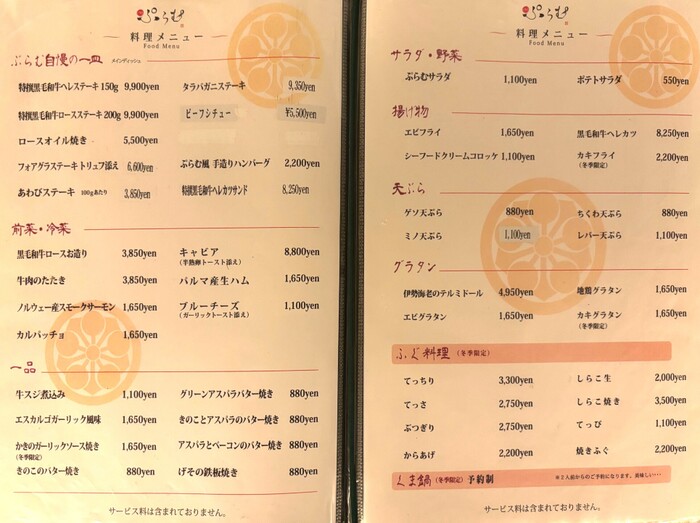 ぷらむ
料理メニュー
Food Menu
ぷらむ自慢の一皿 メインディッシュ
特撰黒毛和牛ヘレステーキ 150g 9,900yen
特撰黒毛和牛ロースステーキ 200g 9,900yen
ロースオイル焼き 5,500yen
フォアグラステーキ トリュフ添え 6,600yen
あわびステーキ 100gあたり 3,850yen
タラバガニステーキ 9,350yen
ビーフシチュー ¥5,500yen
ぷらむ風 手造りハンバーグ 2,200yen
特撰黒毛和牛ヘレカツサンド 8,250yen
前菜・冷菜
黒毛和牛ロースお造り 3,850yen
牛肉のたたき 3,850yen
ノルウェー産スモークサーモン 1,650yen
カルパッチョ 1,650yen
キャビア 8,800yen
(半熟卵トースト添え)
パルマ産生ハム 1,650yen
ブルーチーズ 1,100yen
(ガーリックトースト添え)
一品
牛スジ煮込み 1,100yen
エスカルゴガーリック風味 1,650yen
かきのガーリックソース焼き 1,650yen
(冬季限定)
きのこのバター焼き 880yen
グリーンアスパラバター焼き 880yen
きのことアスパラのバター焼き 880yen
アスパラとベーコンのバター焼き 880yen
げその鉄板焼き 880yen
サービス料は含まれておりません。
ぷらむ
料理メニュー
Food Menu
サラダ・野菜
ぷらむサラダ 1,100yen
ポテトサラダ 550yen
揚げ物
エビフライ 1,650yen
シーフードクリームコロッケ 1,100yen
黒毛和牛ヘレカツ 8,250yen
カキフライ 2,200yen
(冬季限定)
天ぷら
ゲソ天ぷら 880yen
ミノ天ぷら 1,100yen
ちくわ天ぷら 880yen
レバー天ぷら 1,100yen
グラタン
伊勢海老のテルミドール 4,950yen
エビグラタン 1,650yen
地鶏グラタン 1,650yen
カキグラタン 1,650yen
(冬季限定)
ふぐ料理 (冬季限定)
てっちり 3,300yen
てっさ 2,750yen
ぶつぎり 2,750yen
からあげ 2,200yen
しらこ生 2,000yen
しらこ焼き 3,500yen
てっぴ 1,100yen
焼きふぐ 2,200yen
くま鍋 (冬季限定) 予約制 ※2人前からのご予約になります。美味しい・・・
サービス料は含まれておりません。